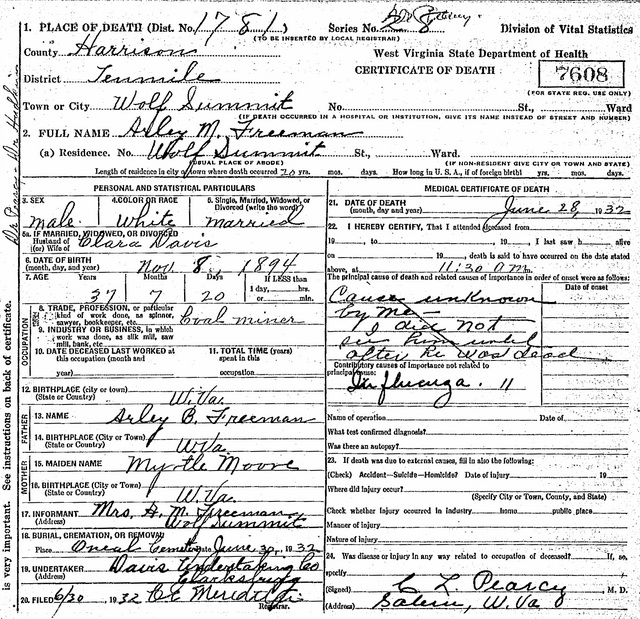 Dr Pearcy
1. PLACE OF DEATH (Dist. No. 1781) Series No. 8 Division of Vital Statistics
(TO BE INSERTED BY LOCAL REGISTRAR)
County Harrison West Virginia State Department of Health
CERTIFICATE OF DEATH 7608
District Tenmile
(FOR STATE REG. USE ONLY)
Town or City Wolf Summit No. St., Ward
(IF DEATH OCCURRED IN A HOSPITAL OR INSTITUTION, GIVE ITS NAME INSTEAD OF STREET AND NUMBER)
2. FULL NAME Arley M. Freeman
(a) Residence. No. Wolf Summit St., Ward.
(USUAL PLACE OF ABODE) (IF NON-RESIDENT GIVE CITY OR TOWN AND STATE)
Length of residence in city or town where death occurred 20 yrs. mos. days. How long in U. S. A., if of foreign birth? yrs. mos. days.
PERSONAL AND STATISTICAL PARTICULARS
3. SEX 4. COLOR OR RACE 5. Single, Married, Widowed, or Divorced (write the word)
Male White Married
5a. IF MARRIED, WIDOWED, OR DIVORCED
Husband of
(or) Wife of Clara Davis
6. DATE OF BIRTH
(month, day, and year) Nov. 8, 1894
7. AGE Years Months Days If LESS than
1 day, hrs.
37 7 20 or min.
OCCUPATION
8. TRADE, PROFESSION, or particular
kind of work done, as spinner,
sawyer, bookkeeper, etc. Coal miner
9. INDUSTRY OR BUSINESS, in which
work was done, as silk mill, saw
mill, bank, etc
10. DATE DECEASED LAST WORKED at 11. TOTAL TIME (years)
this occupation (month and spent in this
year) occupation
12. BIRTHPLACE (city or town)
(State or Country) W.Va.
FATHER
13. NAME Arley B. Freeman
14. BIRTHPLACE (City or Town)
(State or Country) W.Va.
MOTHER
15. MAIDEN NAME Myrtle Moore
16. BIRTHPLACE (City or Town)
(State or Country) W.Va.
17. INFORMANT Mrs. A. M. Freeman
(Address) Wolf Summit
18. BURIAL, CREMATION, OR REMOVAL
Place Oneal Cemetery Date June 30, 1932
19. UNDERTAKER Davis Undertaking Co
(Address) Clarksburg
20. FILED 6/30 1932 Meredith
Registrar.
MEDICAL CERTIFICATE OF DEATH
21. DATE OF DEATH
(month, day and year) June 28, 1932
22. I HEREBY CERTIFY, That I attended deceased from
19 , to , 19 , I last saw h alive
on , 19 , death is said to have occurred on the date stated
above, at 11:30 a m.
The principal cause of death and related causes of importance in order of onset were as follows:
Date of onset
Cause unknown
by me
I did not
see him until
after he was dead
Contributory causes of importance not related to
principal cause:
Influenza. 11
Name of operation Date of
What test confirmed diagnosis?
Was there an autopsy?
23. If death was due to external causes, fill in also the following:
(Check) Accident—Suicide—Homicide? Date of injury 19
Where did injury occur?
(Specify City or Town, County, and State)
Check whether injury occurred in industry home public place
Manner of injury
Nature of injury
24. Was disease or injury in any way related to occupation of deceased? If, so,
specify
(Signed) C L Pearcy, M. D.
(Address) Salem, W.Va
is very important. See instructions on back of certificate.